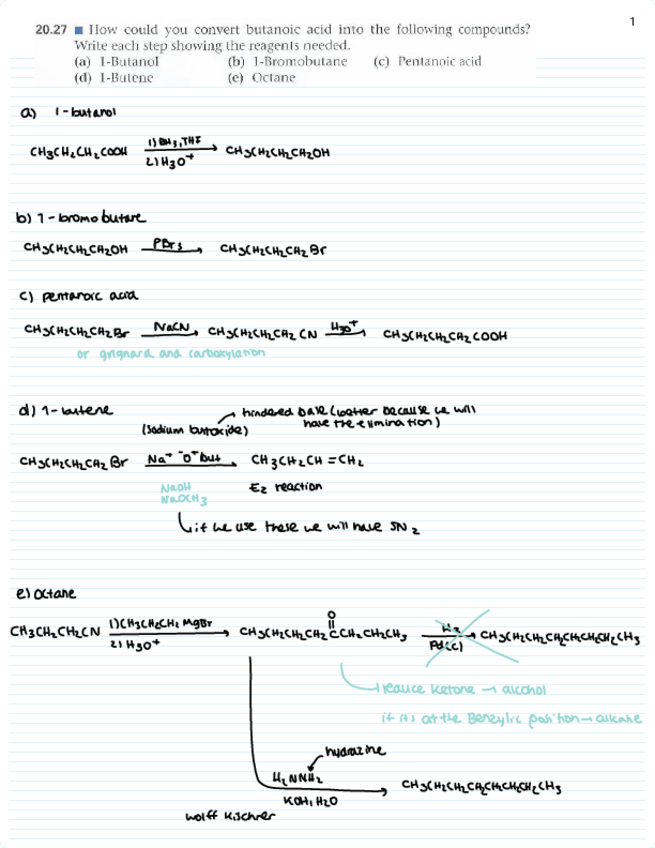 1
20.27 ■ How could you convert butanoic acid into the following compounds?
Write each step showing the reagents needed.
(a) 1-Butanol (b) 1-Bromobutane (c) Pentanoic acid
(d) 1-Butene (e) Octane
a) 1-butanol
CH3CH2CH2COOH 1) BH3, THF 2) H3O+ → CH3CH2CH2CH2OH
b) 1-bromobutane
CH3CH2CH2CH2OH PBr3 → CH3CH2CH2CH2Br
c) pentanoic acid
CH3CH2CH2CH2Br NaCN → CH3CH2CH2CH2CN H3O+ → CH3CH2CH2CH2COOH
or grignard and carboxylation
d) 1-butene
hindered base (better because we will
have the elimination)
(sodium butoxide)
CH3CH2CH2CH2Br Na+ -O+but → CH3CH2CH=CH2
NaOH
NaOCH3
E2 reaction
if we use these we will have SN2
e) octane
CH3CH2CH2CN 1) CH3CH2CH2MgBr 2) H3O+ → CH3CH2CH2CH2CCH2CH2CH3 H2 Pd(C) → CH3CH2CH2CH2CH2CH2CH2CH3
O
reduce ketone → alcohol
if its at the Benzylic position → alkane
hydrazine
H2NNH2
KOH, H2O → CH3CH2CH2CH2CH2CH2CH2CH3
wolff Kischner